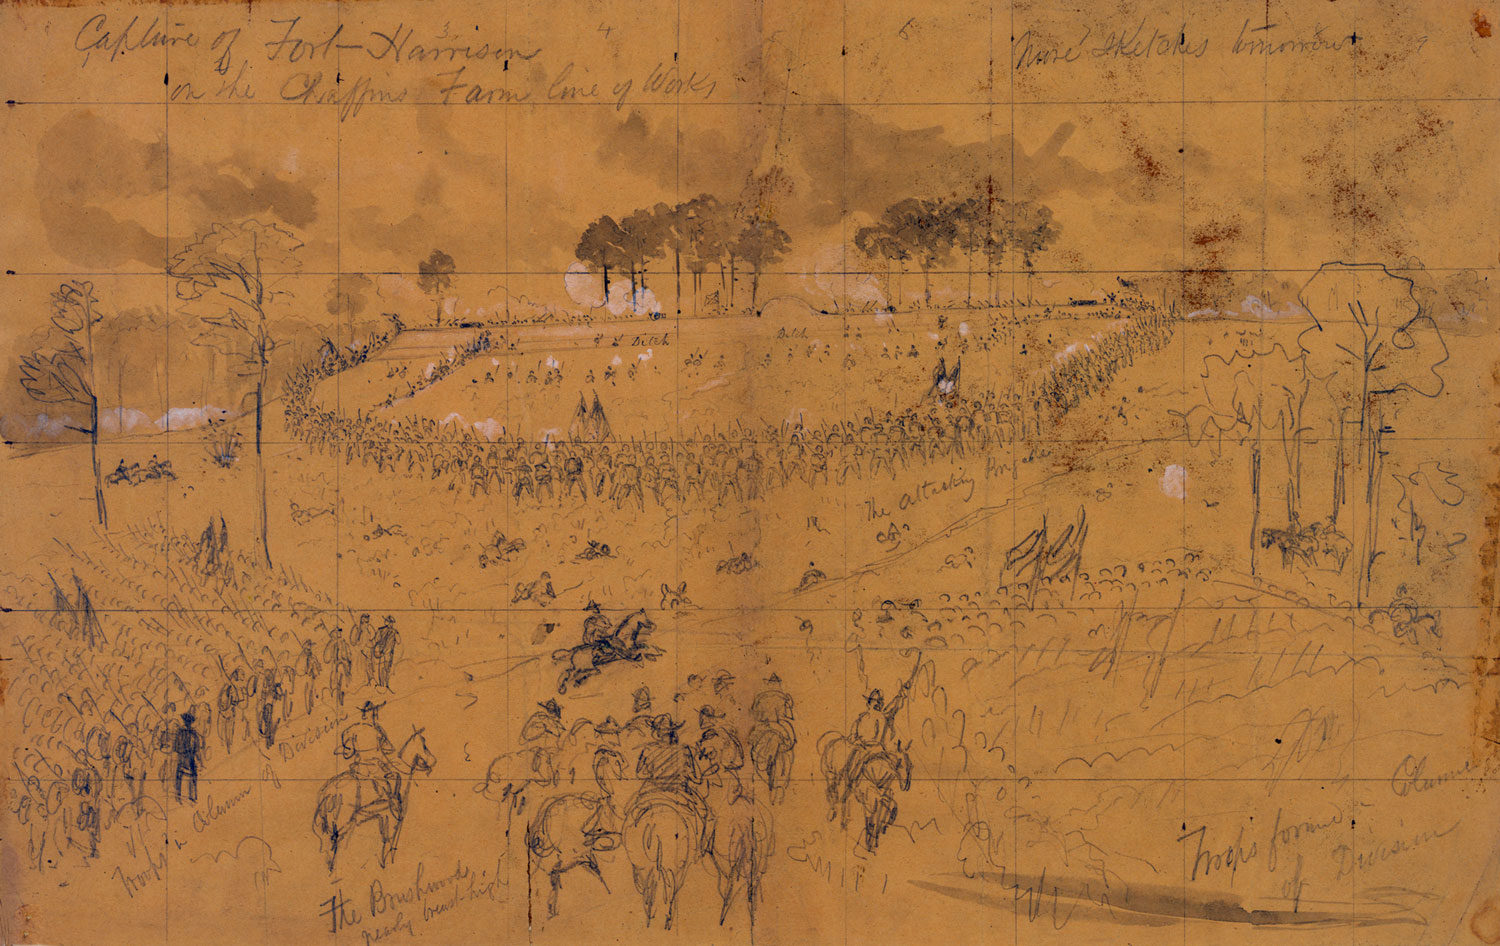 Capture of Fort Harrison
on the Chaffins Farm line of Works
More sketches tomorrow
3
4
Ditch
Ditch
The attacking
Troops in Column of Division
The Brushwood
nearly breast high
Troops formed in Column
of Division